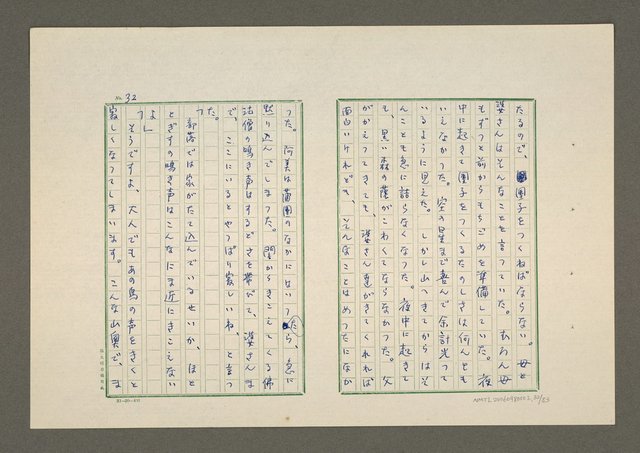 たるので、團子をつくねばならない。母と
婆さんはそんなことを言つていた。むろん母
もずつと前からもちごめを準備していた。夜
中に起きて團子をつくるたのしさは何んとも
いえなかつた。空の星まで喜んで余計光つて
いるように見えた。しかし山へきてからはそ
んことも急に詰らなくなつた。夜中に起きて
も、黒い森の蔭がこわくてならなかつた。父
がかえつてきても、婆さん達がきてくれれば
面白いけれども、そんなことはめつたになか
No. 32
つた。阿美は蒲團のなかにはいつたら、急に
黙り込んでしまつた。闇からきこえてくる佛
法僧の鳴き声はするどさを帯びて、婆さんま
で、ここにいるとやつぱり寂しいね、と言つ
た。
部落では家がたて込んでいるせいか、ほと
とぎすの鳴き声はこんなにま近にきこえない
よ」
そうですよ、大人でもあの鳥の声をきくと
寂しくなつてしまいます。こんな山奥で、ま
NMTL20160980002_32/53